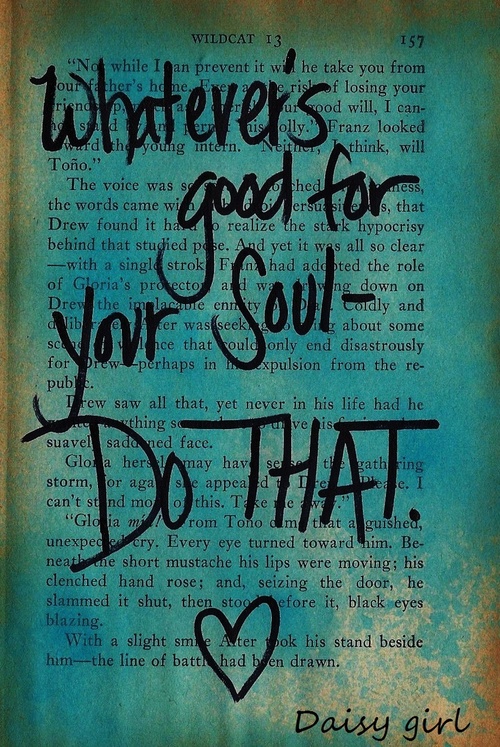 WILDCAT 13 157
Whatever's
good for
your Soul-
DO THAT.
"No, while I can prevent it will he take you from
your father's home. Even at the risk of losing your
good will, I can-
Franz looked
toward the young intern. "Neither, I think, will
Toño."
The voice was
the words came with that
Drew found it hard to realize the stark hypocrisy
behind that studied pose. And yet it was all so clear
—with a single stroke Franz had adopted the role
of Gloria's protector and was down on
Drew the implacable enmity Coldly and
was seeking about some
scene that could only end disastrously
for Drew—perhaps in his expulsion from the re-
public.
Drew saw all that, yet never in his life had he
suave saddened face.
Gloria herself may have sensed the gathering
storm, for again she appealed to Drew. "Please. I
can't stand more of this. Take me away."
"Gloria mia!" From Toño came that anguished,
unexpected cry. Every eye turned toward him. Be-
neath the short mustache his lips were moving; his
clenched hand rose; and, seizing the door, he
slammed it shut, then stood before it, black eyes
blazing.
With a slight smile took his stand beside
him—the line of battle had been drawn.
Daisy girl